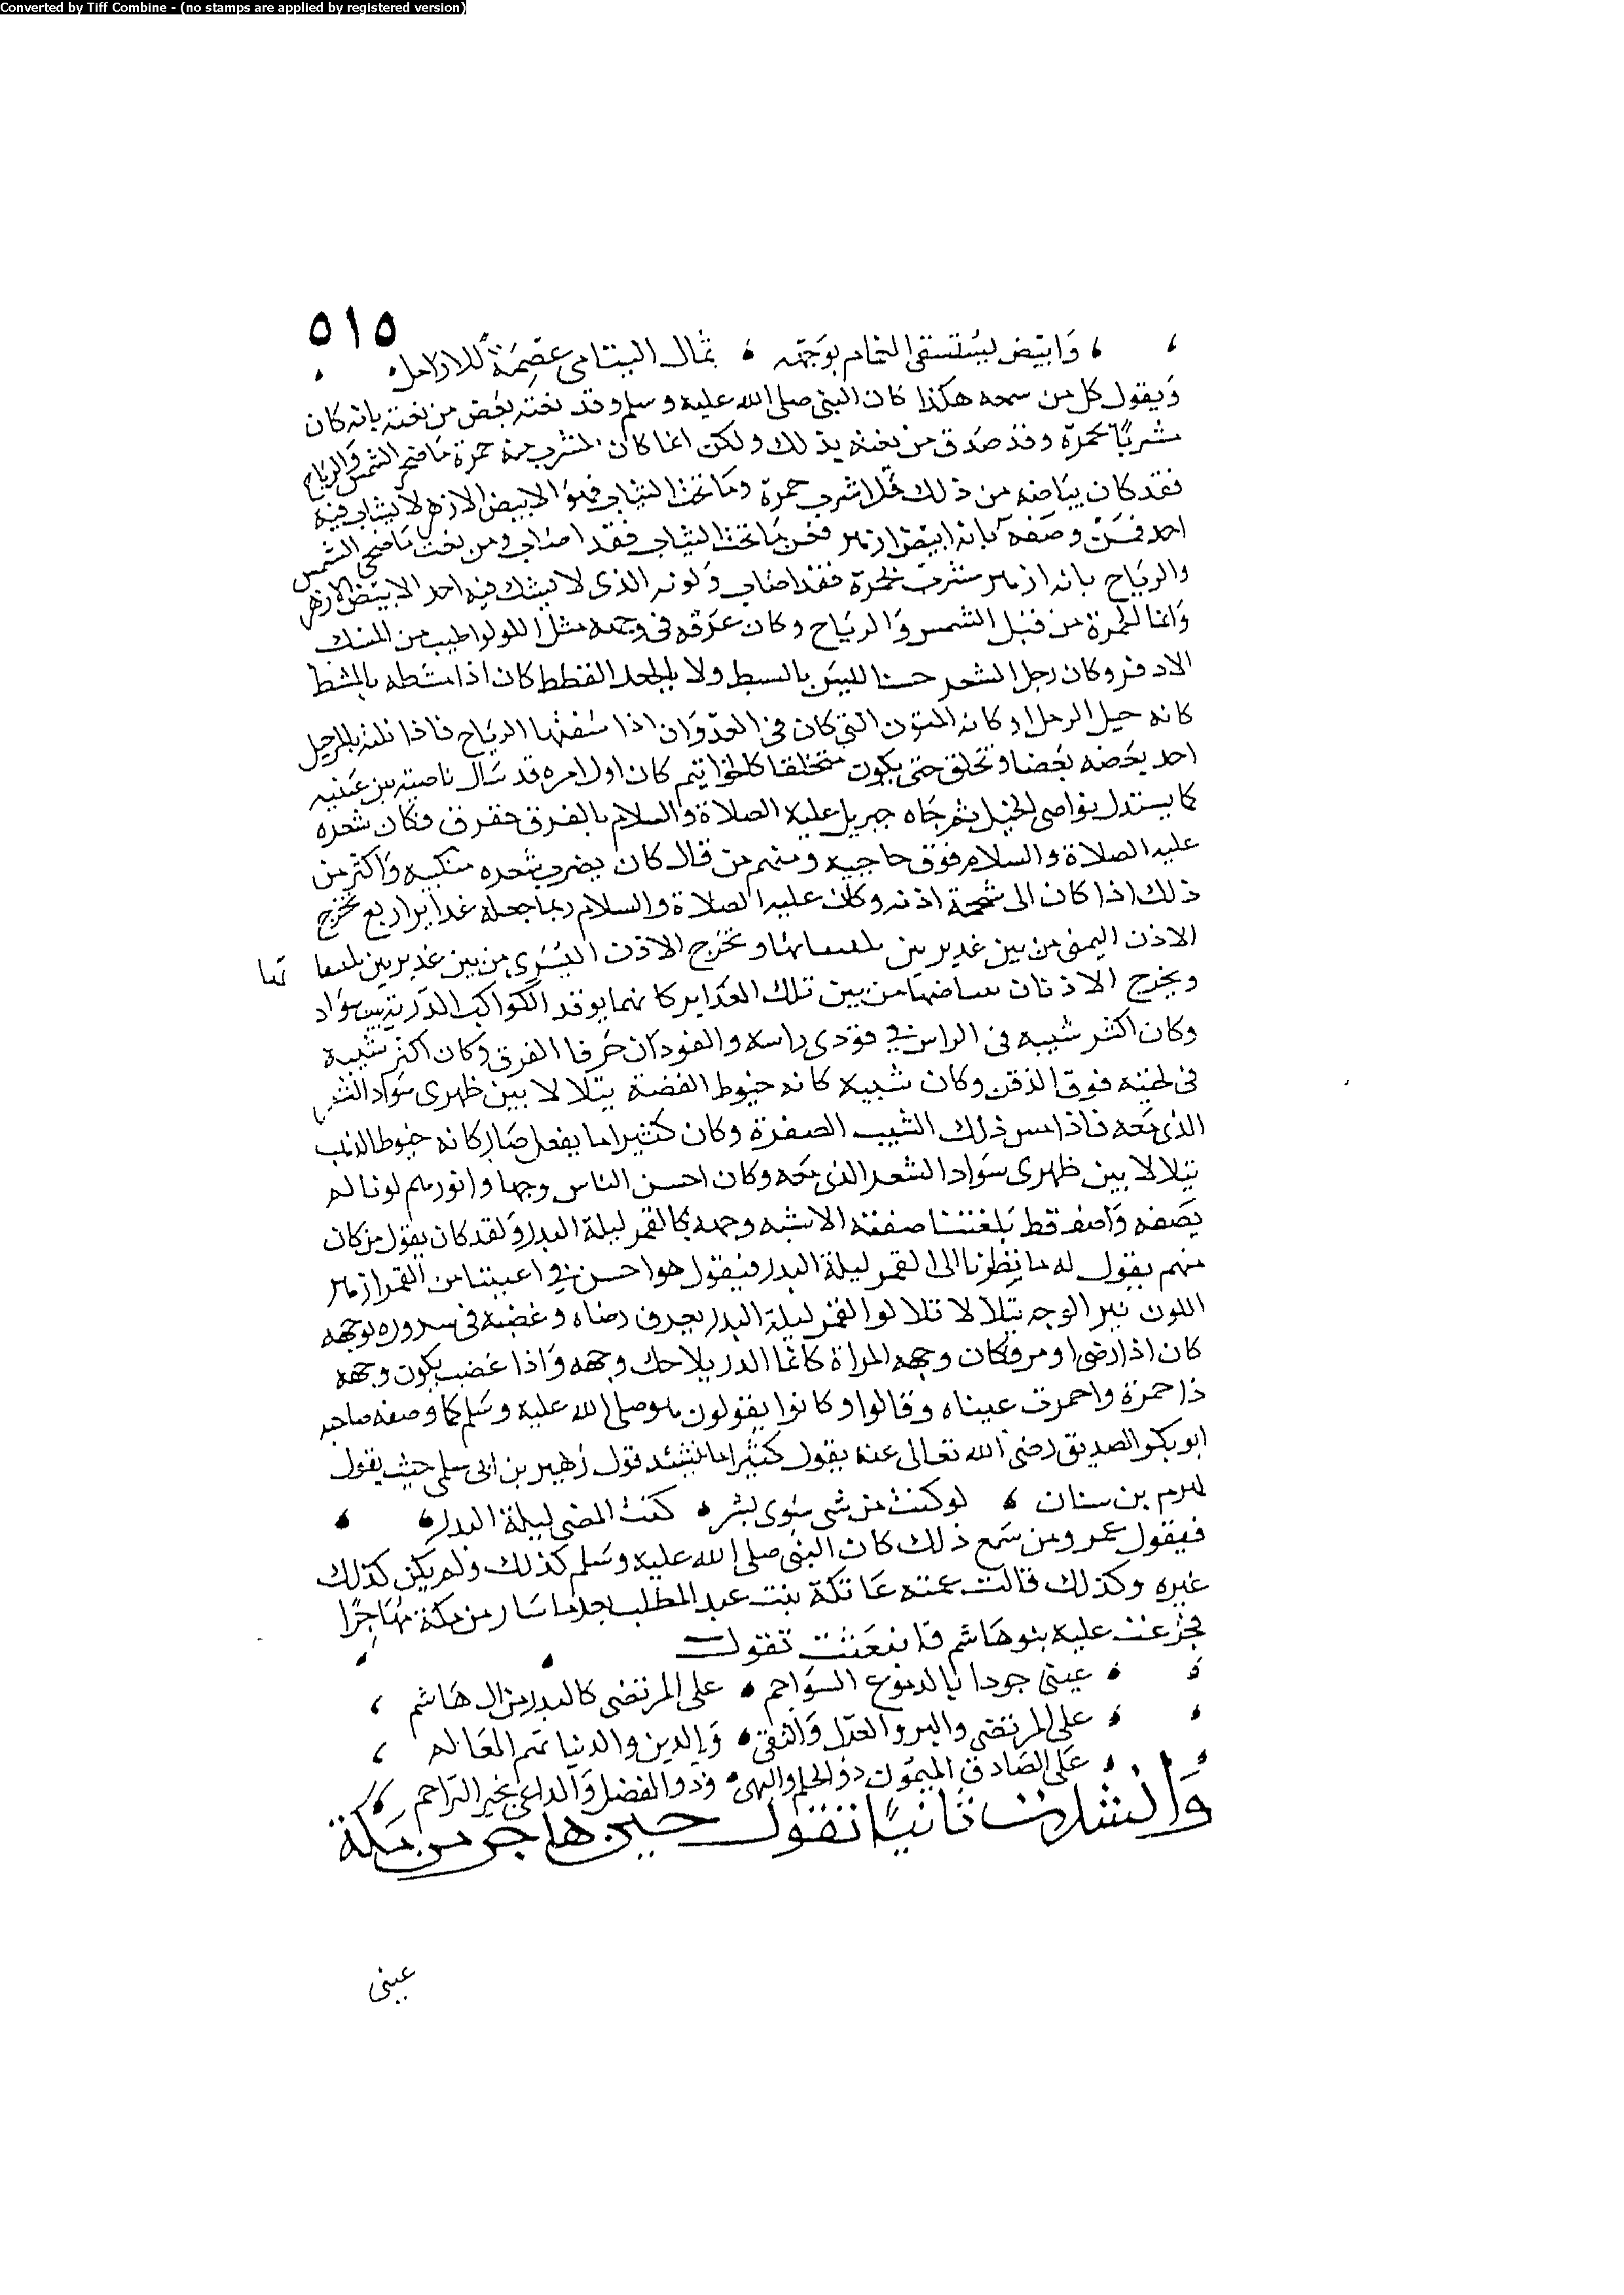 Converted by Tiff Combine - (no stamps are applied by registered version)
٥١٥
وَابيَض يستسقى الغمام بوَجهه ، ثمال اليتامى عصِمَة للارامل
وَيقول كل من سمعه هكذا كان النبى صلى الله عليه وسلم وقد نعته بعض من نعته بانه كان
مشربًا بحمرة وقد صَدق من نعته بذلك ولكن انما كان المشرب منه حمرة مَا ضحى الشمس وَالرياح
فقد كان بيَاضه من ذلك قد اشرب حمرة ومَا تحت الثياب فهوَ الابيض الازهر لا يشك فيه
احد فمن وصَفه بانه ابيَض ازهر فعن مَا تحت الثياب فقد اصَاب ومن نعت مَا ضحى الشمس
والريَاح بانه ازهر مشرب بحمرة فقد اصَاب وَلونه الذى لا يشك فيه احد الابيَض الازهر
وَانما الحمرة من قبل الشمس وَالريَاح وكان عَرَقه فى وجهه مثل اللولو اطيب من المسك
الادفر وكان رجل الشعر حسنا ليسَ بالسبط ولا بالجعد القطط كان اذا مشطه بالمشط
كانه حبل الرمل او كانه المتون التى كان فى الغدوَان اذا سفتها الريَاح فاذا نكته بالمرجل
احد بعَضه بعَضا وتحلق حتى يكون متحلقا كالخواتيم كان اول امره قد سَدل ناصيته بين عَينيه
كما يستدل نواصى الخيل ثم جَاه جبريل عليه الصلاة وَالسلام بالفرق ففرق فكان شعره
عليه الصلاة والسلام فوق حاجبيه ومنهم من قال كان يضرب شعره منكبيه وَاكثر من
ذلك اذا كان الى شحمة اذنه وكان عليه الصلاة والسلام ربما جعله غدايرا اربع تخرج
الاذن اليمنى من بين غديرتين وتخرج الاذن اليسرى من بين غديرتين
ويخرج الاذنان من بين تلك الغَداير كانهما يوقد الكوَاكب الدرية بين سَواد
وكان اكثر شيبه فى الراس فى فوَدى راسه والفودان حَرفا الفرق وَكان اكثر شيبه
فى لحيته فوق الذقن وكان شيبه كانه خيوط الفضة يتلالا بين ظهرى سَواد الشعر
الذى معَه فاذا مس ذلك الشيب الصفرة وكان كثيرا ما يفعل صَار كانه خيوط الذهب
يتلالا بين ظهرى سَواد الشعر الذى معَه وكان احسن الناس وجها وانورهم لونا لم
يصَفه وَاصف قط بَلغتنا صفته الا شبه وجهه بالقمر ليلة البدر وَلقد كان يقول من كان
منهم يقول له ما نظرنا الى القمر ليلة البدر فيقول هو احسن فى اعيننا من القمر ازهر
اللون نير الوجه يتلالا تلالو القمر ليلة البدر يعرف رضاه وغضبه فى سروره بوجهه
كان اذا رضى او سر فكان وجهه المراة كانما الدر يلاحك وجهه وَاذا غضب يكون وجهه
ذا حمرة واحمرت عيناه وقالوا وكانوا يقولون هو صلى الله عليه وسَلم كما وصفه صاحبه
ابو بكر الصديق رضى الله تعالى عنه يقول كثيرا ما ينشد قول زهير بن ابى سلمى حيث يقول
لهرم بن سنان ، لو كنت من شى سوَى بشر ، كنت المضى ليلة البدر
فيقول عمر ومن سَمع ذلك كان النبى صلى الله عليه وسَلم كذلك ولم يكن كذلك
غيره وكذلك قالت عمته عَاتكة بنت عبد المطلب بعدما سَار من مكة مهَاجرًا
فجزعت عليه بنو هَاشم فانبعَثت تقول
عينى جودا بالدموع السوَاجم ، على المرتضى كالبدر من ال هَاشم
على المرتضى والبر والعدَل وَالتقى ، وَالدين والدنيا مقيم المعَالم
عَلى الصَادق الميمون ذو الحلم والنهى ، وذو الفضل وَالداعى بخير التراحم
وَانشدت ثانيًا تقول حين هاجر من مَكة
عينى